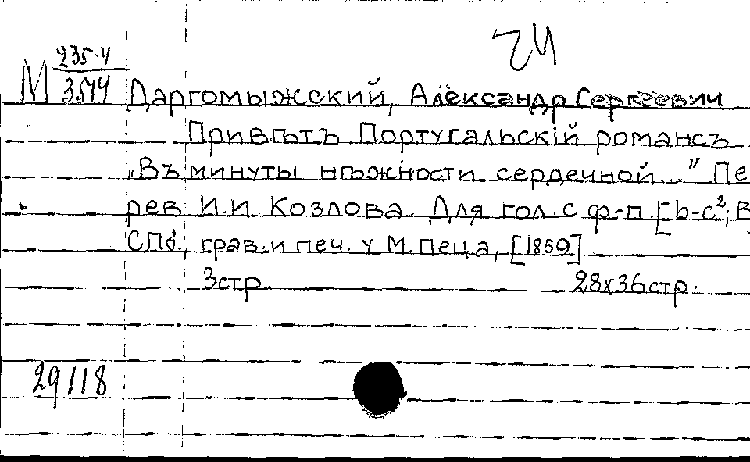 24
М 235-4
3544 Даргомыжский, Александр Сергеевич
Привѣтъ Португальскiй романсъ
„Въ минуты нѣжности сердечной..." Пе
рев И.И Козлова. Для гол. с ф-п. [b-c²; В
СПб, грав. и печ. у М. Пеца, [1859]
3стр 28х36стр.
29118